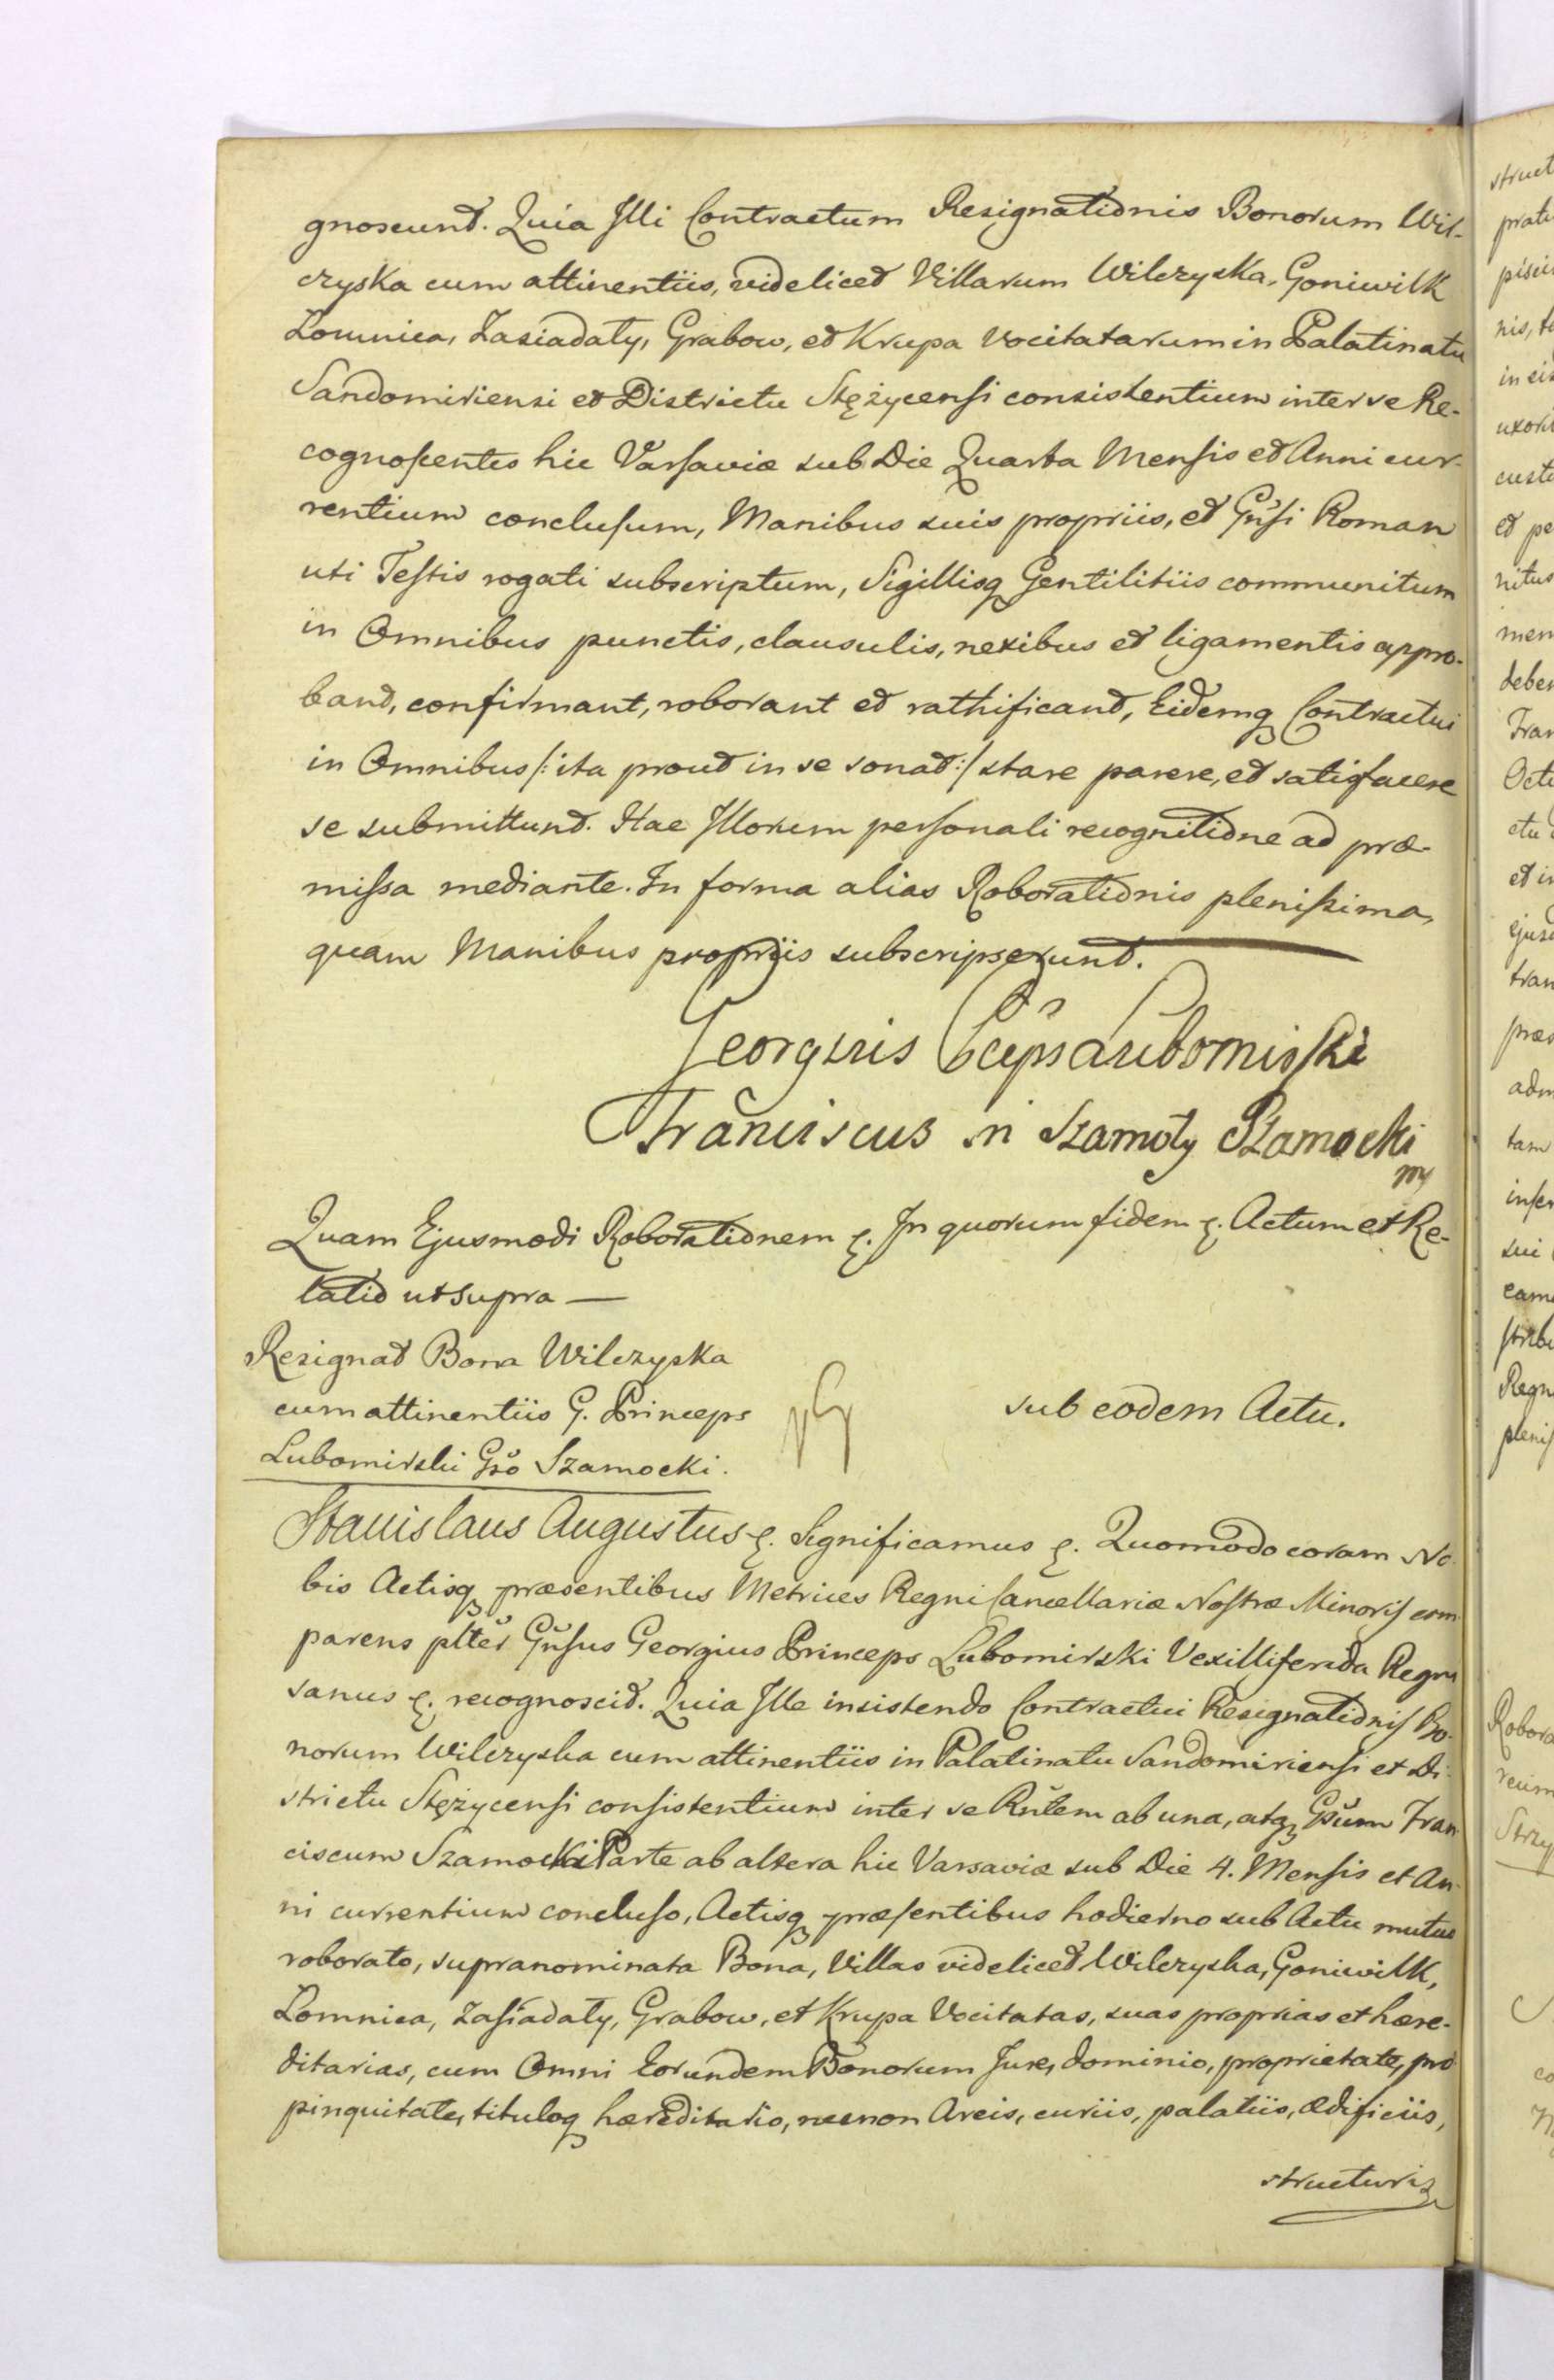 gnoscunt. Quia Illi Contractum Resignationis Bonorum Wil-
czyska cum attinentiis, videlicet Villarum Wilczyska, Goniwilk
Łomnica, Zasiadały, Grabow, et Krupa vocitatarum in Palatinatu
Sandomiriensi et Districtu Stężycensi consistentium inter se Re-
cognoscentes hic Varsaviæ sub Die Quarta Mensis et Anni cur-
rentium conclusum, Manibus suis propriis, et Gñsi Roman
uti Testis rogati subscriptum, Sigillisq Gentilitiis communitum
in Omnibus punctis, clausulis, nexibus et ligamentis appro-
bant, confirmant, roborant et rathificant, Eidemq Contractui
in Omnibus /: ita prout in se sonat :/ stare parere, et satisfacere
se submittunt. Hac Illorum personali recognitione ad præ-
missa mediante. In forma alias Roborationis plenissima,
quam Manibus propriis subscripserunt.
Georgius Lubomirski
Franciscus in Szamoty Szamocki
mp
Quam Ejusmodi Roborationem ę. In quorum fidem ę. Actum et Re-
latio ut supra —
Resignat Bona Wilczyska
cum attinentiis G. Princeps
Lubomirski Gso Szamocki.
sub eodem Actu.
Stanislaus Augustus ę. Significamus ę. Quomodo coram No-
bis Actisq præsentibus Metrices Regni Cancellariæ Nostræ Minoris com-
parens plter Gñsus Georgius Princeps Lubomirski Vexilliferida Regni
sanus ę. recognoscit. Quia Ille insistendo Contractui Resignationis Bo-
norum Wilczyska cum attinentiis in Palatinatu Sandomiriensi et Di-
strictu Stężycensi consistentium inter se Rñtem ab una, atq Gsum Fran-
ciscum Szamocki Parte ab altera hic Varsaviæ sub Die 4. Mensis et An-
ni currentium concluso, Actisq præsentibus hodierno sub Actu mutuo
roborato, supranominata Bona, Villas videlicet Wilczyska, Goniwilk,
Łomnica, Zasiadały, Grabow, et Krupa Vocitatas, suas proprias et hære-
ditarias, cum Omni Eorundem Bonorum Jure, dominio, proprietate, pro
pinquitate, tituloq hæreditario, necnon Areis, curiis, palatiis, ædificiis,
structuris